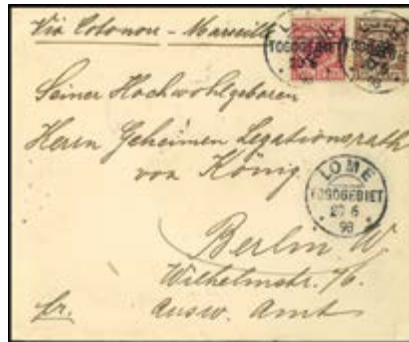 Via Cotonou - Marseille
TOGOGEBIET
TOGOGEBIET
Seiner Hochwohlgeboren
Herrn Geheimen Legationsrath
von König
LOME
TOGOGEBIET
27 6
98
Berlin W
Wilhelmstr. 76.
fr. Ausw. Amt